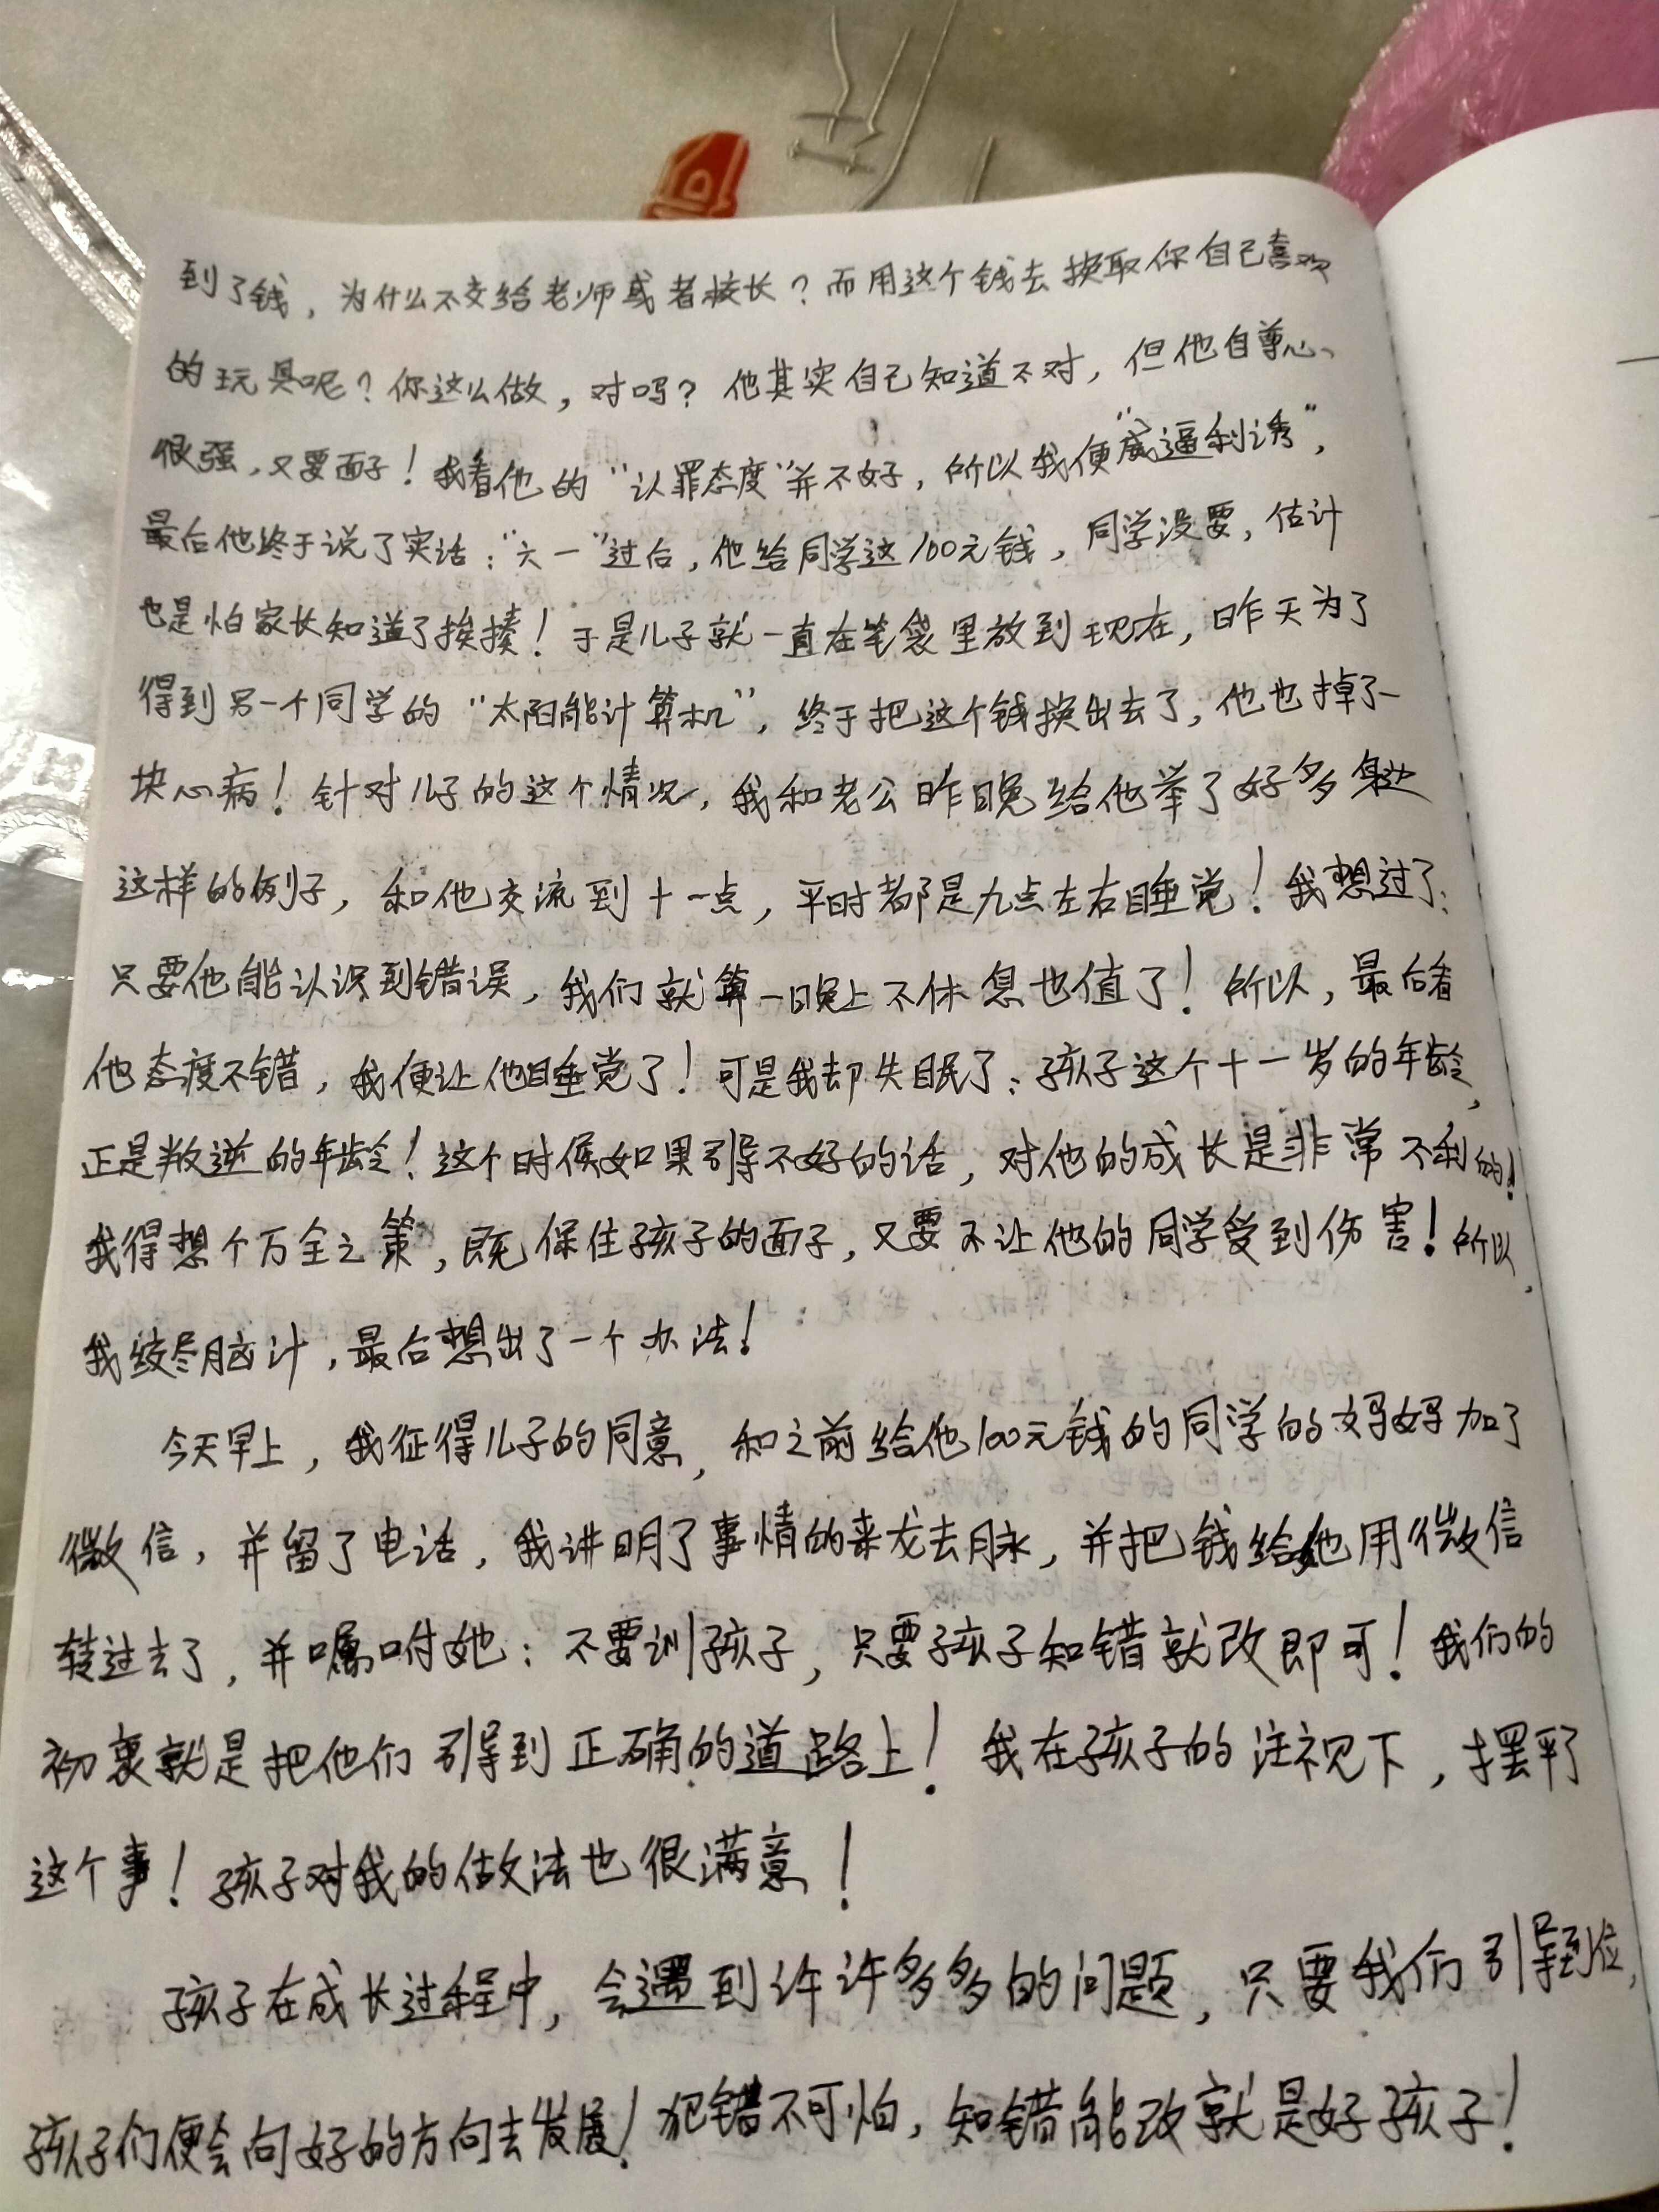 到了钱，为什么不交给老师或者校长？而用这个钱去换取你自己喜欢
的玩具呢？你这么做，对吗？他其实自己知道不对，但他自尊心
很强，又要面子！我看他的“认罪态度”并不好，所以我便“威逼利诱”，
最后他终于说了实话：“六一”过后，他给同学这100元钱，同学没要，估计
也是怕家长知道了挨揍！于是儿子就一直在笔袋里放到现在，昨天为了
得到另一个同学的“太阳能计算机”，终于把这个钱换出去了，他也掉了一
块心病！针对儿子的这个情况，我和老公昨晚给他举了好多身边
这样的例子，和他交流到十一点，平时都是九点左右睡觉！我想过了：
只要他能认识到错误，我们就算一晚上不休息也值了！所以，最后看
他态度不错，我便让他睡觉了！可是我却失眠了：孩子这个十一岁的年龄，
正是叛逆的年龄！这个时候如果引导不好的话，对他的成长是非常不利的！
我得想个万全之策，既保住孩子的面子，又要不让他的同学受到伤害！所以，
我绞尽脑汁，最后想出了一个办法！
今天早上，我征得儿子的同意，和之前给他100元钱的同学的妈妈加了
微信，并留了电话，我讲明了事情的来龙去脉，并把钱给她用微信
转过去了，并嘱咐她：不要训孩子，只要孩子知错就改即可！我们的
初衷就是把他们引导到正确的道路上！我在孩子的注视下，摆平了
这个事！孩子对我的做法也很满意！
孩子在成长过程中，会遇到许许多多的问题，只要我们引导到位，
孩子们便会向好的方向去发展！犯错不可怕，知错能改就是好孩子！